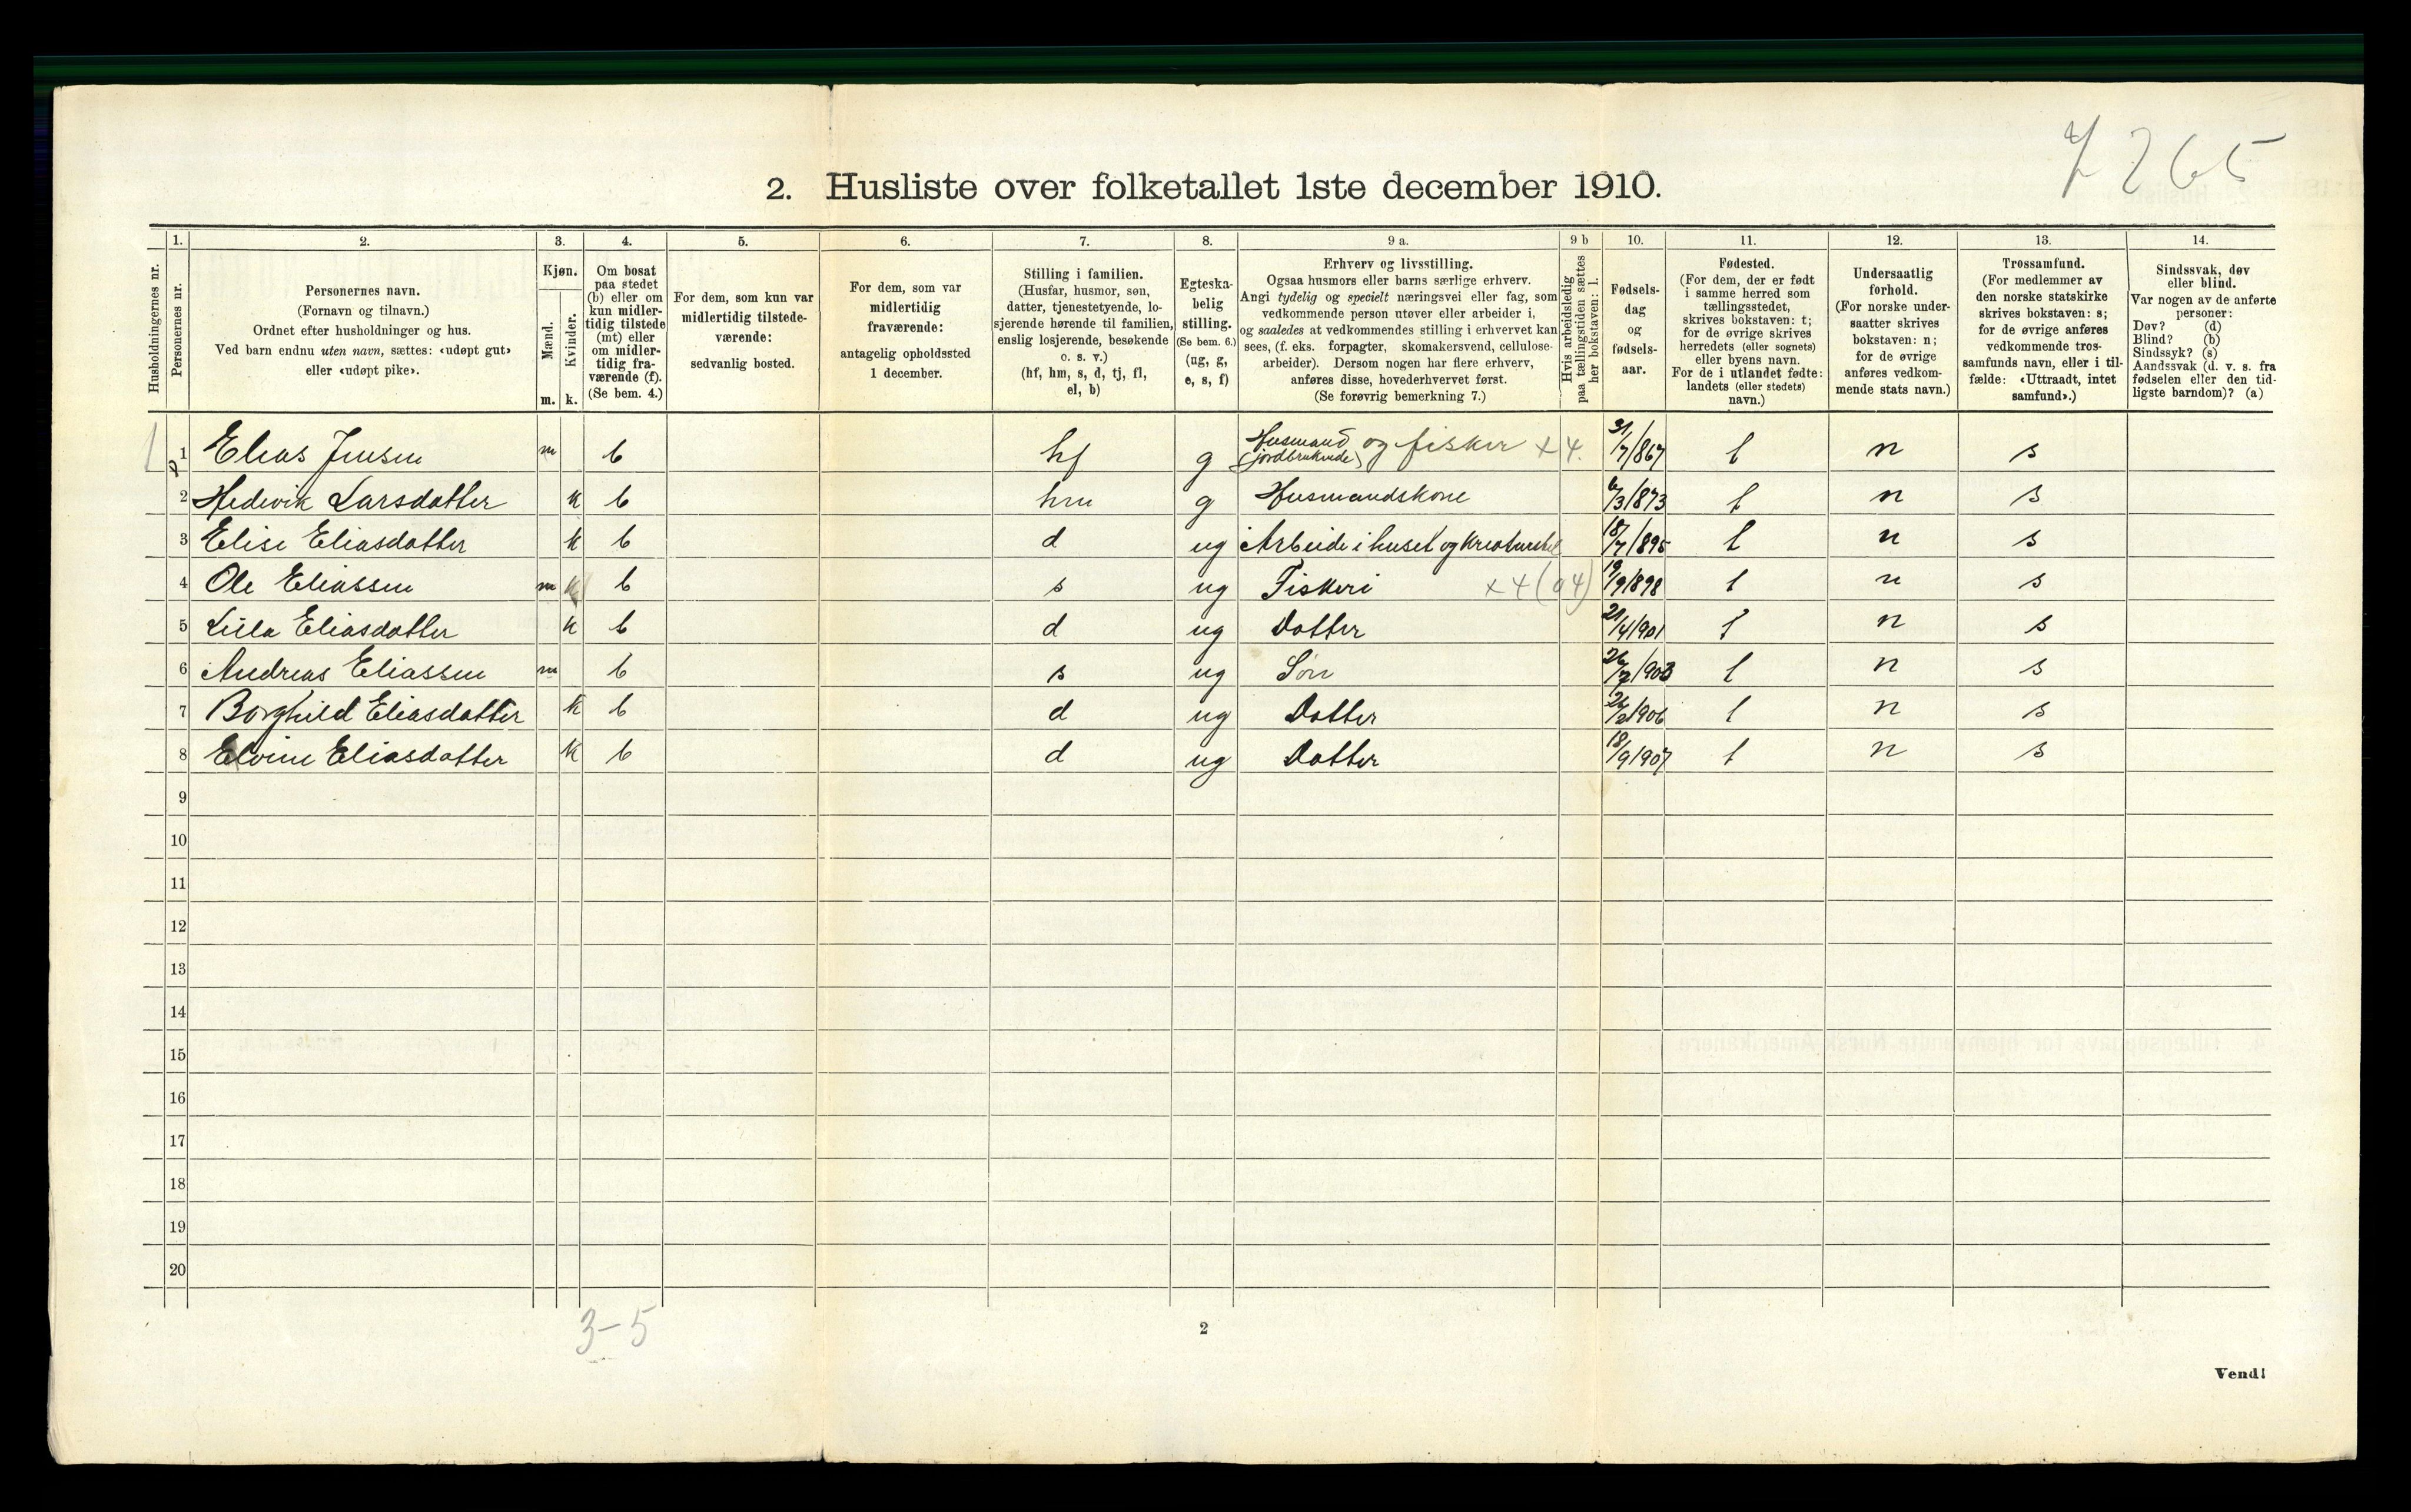 265
2. Husliste over folketallet 1ste december 1910.
1. 2. 3. 4. 5. 6. 7. 8. 9 a. 9 b 10. 11. 12. 13. 14.
Husholdningernes nr.
Personernes nr.
Personernes navn.
(Fornavn og tilnavn.)
Ordnet efter husholdninger og hus.
Ved barn endnu uten navn, sættes: «udøpt gut»
eller «udøpt pike».
Kjøn.
Mænd.
Kvinder.
m. k.
Om bosat
paa stedet
(b) eller om
kun midler-
tidig tilstede
(mt) eller
om midler-
tidig fra-
værende (f).
(Se bem. 4.)
For dem, som kun var
midlertidig tilstede-
værende:
sedvanlig bosted.
For dem, som var
midlertidig
fraværende:
antagelig opholdssted
1 december.
Stilling i familien.
(Husfar, husmor, søn,
datter, tjenestetyende, lo-
sjerende hørende til familien,
enslig losjerende, besøkende
o. s. v.)
(hf, hm, s, d, tj, fl,
el, b)
Egteska-
belig
stilling.
(Se bem. 6.)
(ug, g,
e, s, f)
Erhverv og livsstilling.
Ogsaa husmors eller barns særlige erhverv.
Angi tydelig og specielt næringsvei eller fag, som
vedkommende person utøver eller arbeider i,
og saaledes at vedkommendes stilling i erhvervet kan
sees, (f. eks. forpagter, skomakersvend, cellulose-
arbeider). Dersom nogen har flere erhverv,
anføres disse, hovederhvervet først.
(Se forøvrig bemerkning 7.)
Hvis arbeidsledig
paa tællingstiden sættes
her bokstaven: l.
Fødsels-
dag
og
fødsels-
aar.
Fødested.
(For dem, der er født
i samme herred som
tællingsstedet,
skrives bokstaven: t;
for de øvrige skrives
herredets (eller sognets)
eller byens navn.
For de i utlandet fødte:
landets (eller stedets)
navn.)
Undersaatlig
forhold.
(For norske under-
saatter skrives
bokstaven: n;
for de øvrige
anføres vedkom-
mende stats navn.)
Trossamfund.
(For medlemmer av
den norske statskirke
skrives bokstaven: s;
for de øvrige anføres
vedkommende tros-
samfunds navn, eller i til-
fælde: «Uttraadt, intet
samfund».)
Sindssvak, døv
eller blind.
Var nogen av de anførte
personer:
Døv? (d)
Blind? (b)
Sindssyk? (s)
Aandssvak (d. v. s. fra
fødselen eller den tid-
ligste barndom)? (a)
1 1 Elias Jensen m b hf g Husmand (jordbrukende) og fisker x 4. 31/7/867 t n s
2 Hedevik Larsdatter k b hm g Husmandskone 6/3/873 t n s
3 Elise Eliasdatter k b d ug Arbeide i huset og Kreaturstel 18/7/895 t n s
4 Ole Eliassen m k b s ug Fiskeri x 4 (04) 19/9/898 t n s
5 Lilla Eliasdatter k b d ug Datter 21/4/901 t n s
6 Andreas Eliassen m b s ug Søn t n s
7 Borghild Eliasdatter k b d ug Datter 26/2/906 t n s
8 Elvine Eliasdatter k b d ug Datter 18/9/907 t n s
9
10
11
12
13
14
15
16
17
18
19
20
3-5
2
Vend!